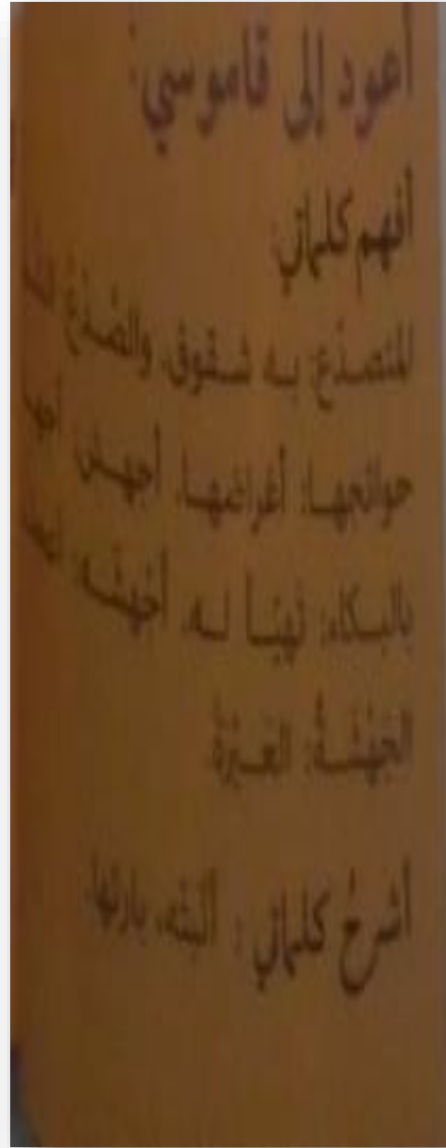 أعود إلى قاموسي:
أفهم كلماتي:
المتصدّع: به شقوق، والصّدع
حوائجها: أغراضها. أجهش،
بالبكاء: تهيّأ له. أجهشه:
الجَهْشَةُ: العَبْرَةُ.
أشرحُ كلماتي: ألبتّه، بارئها.